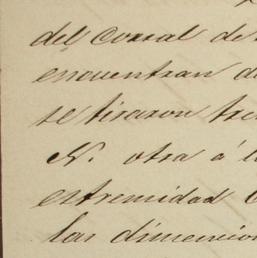 del corral de
encuentran d
se tiraron tre
N. otra á l
estremidad
las dimension